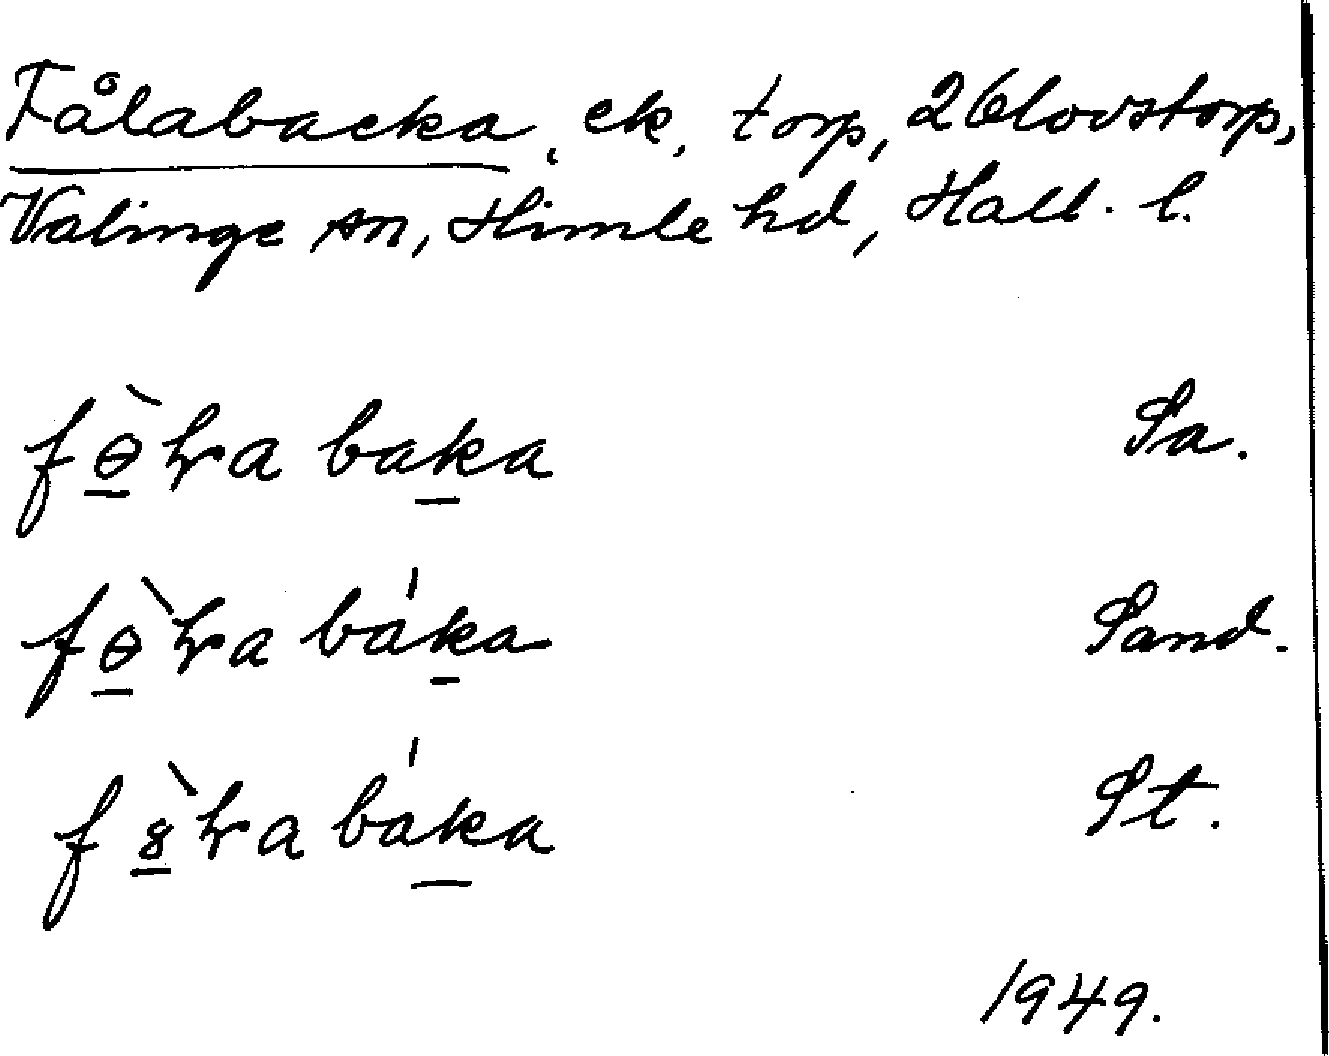 Fålabacka, ek. torp, 2 Olovstorp,
Valinge sn, Himle hd, Hall. l.
fɵ̀ɽa baka Sa.
fɵ̀ɽa ba'ka Sand.
f8̀ɽa ba'ka St.
1949.